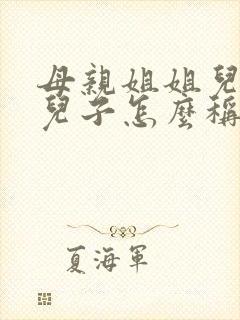 母親姐姐兒
兒子怎麼稱
夏海軍